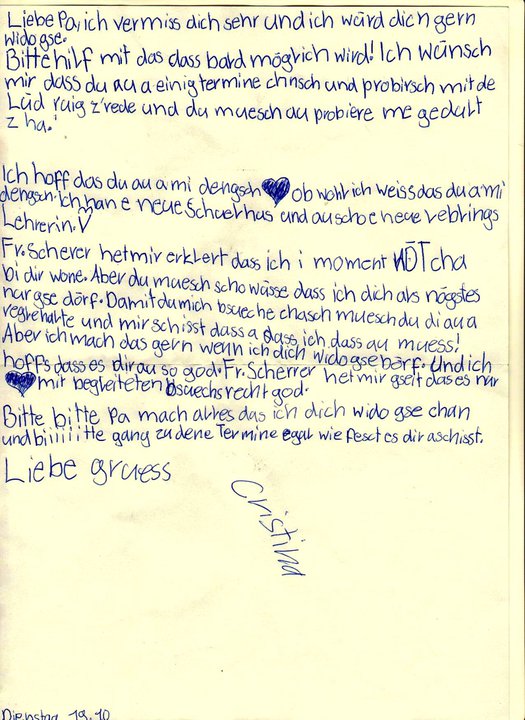 Liebe Pa, ich vermiss dich sehr und ich würd dich gern
wido gse.
Bitte hilf mit das dass bard möglich wird! Ich wünsch
mir dass du au a einig termine chnsch und probirsch mit de
Lüd ruig z'rede und du muesch au probiere me gedult
z ha.!
Ich hoff das du au a mi dengsch ob wohl ich weiss das du a mi
dengsch. Ich han e neue Schuelhus und au scho e neue
Lehrerin.
Fr. Scherer het mir erklert dass ich i moment NÖT cha
bi dir wone. Aber du muesch scho wüsse dass ich dich als nögstes
nur gse dörf. Damit du mich bsueche chasch muesch du di au a
regle halte und mir schisst dass a dass, ich, dass au muess!
Aber ich mach das gern wenn ich dich wido gse dörf. Und ich
hoffs dass es dir au so god. Fr. Scherrer het mir gseit das es nur
mit begleiteten bsuechs recht god.
Bitte bitte Pa mach alles das ich dich wido gse chan
und biiiiiitte gang zu dene Termine egal wie fescht es dir aschisst.
Liebe gruess
Cristina
Dienstag 19.10